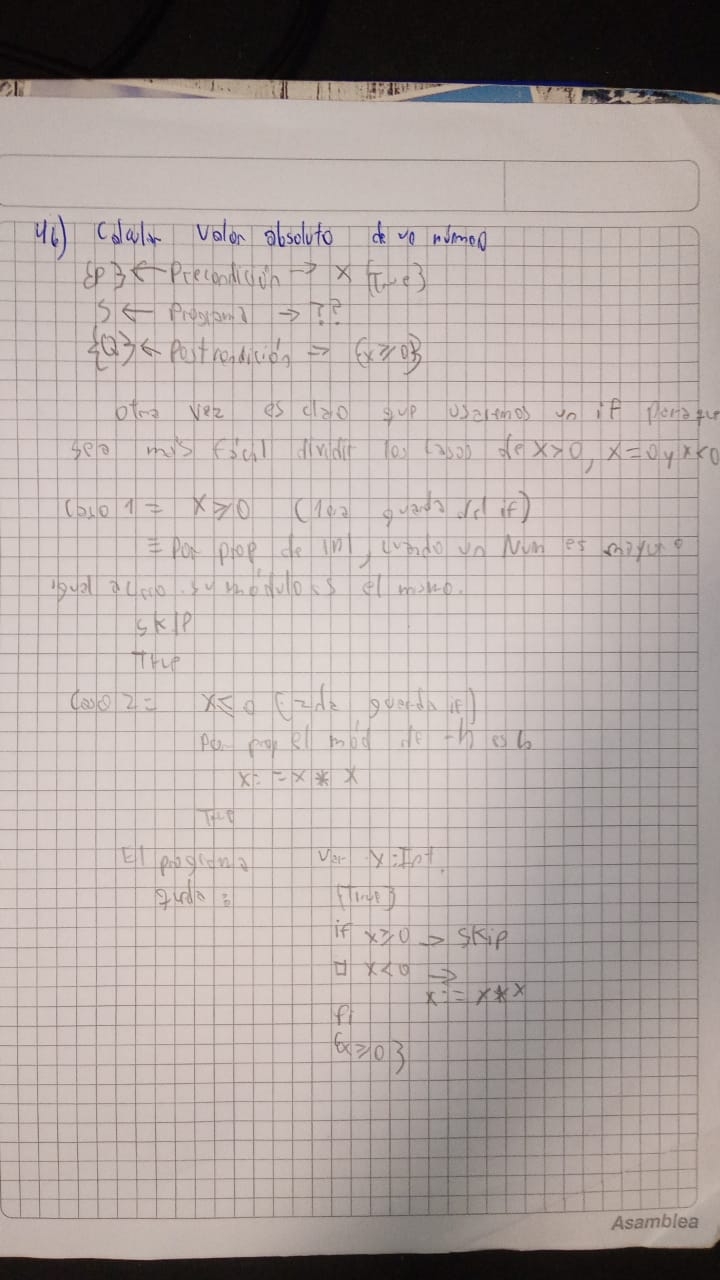 4b) Calcular valor absoluto de un número
{P} ← Precondición → x {True}
S ← Programa → ??
{Q} ← Postcondición → {x ≥ 0}
otra vez es claro que usaremos un if para que
sea más fácil dividir los casos de x>0, x=0 y x<0
Caso 1 = x ≥ 0 (1era guarda del if)
≡ Por prop. de |n|, cuando un Num es mayor o
igual a cero su módulo es el mismo.
skip
True
Caso 2 = x ≤ 0 (2da guarda if)
Por prop el mod de -4 es 4
x := x * x
True
El programa var x:Int.
queda: {True}
if x≥0 → skip
□ x<0 →
x := x*x
fi
{x≥0}
Asamblea